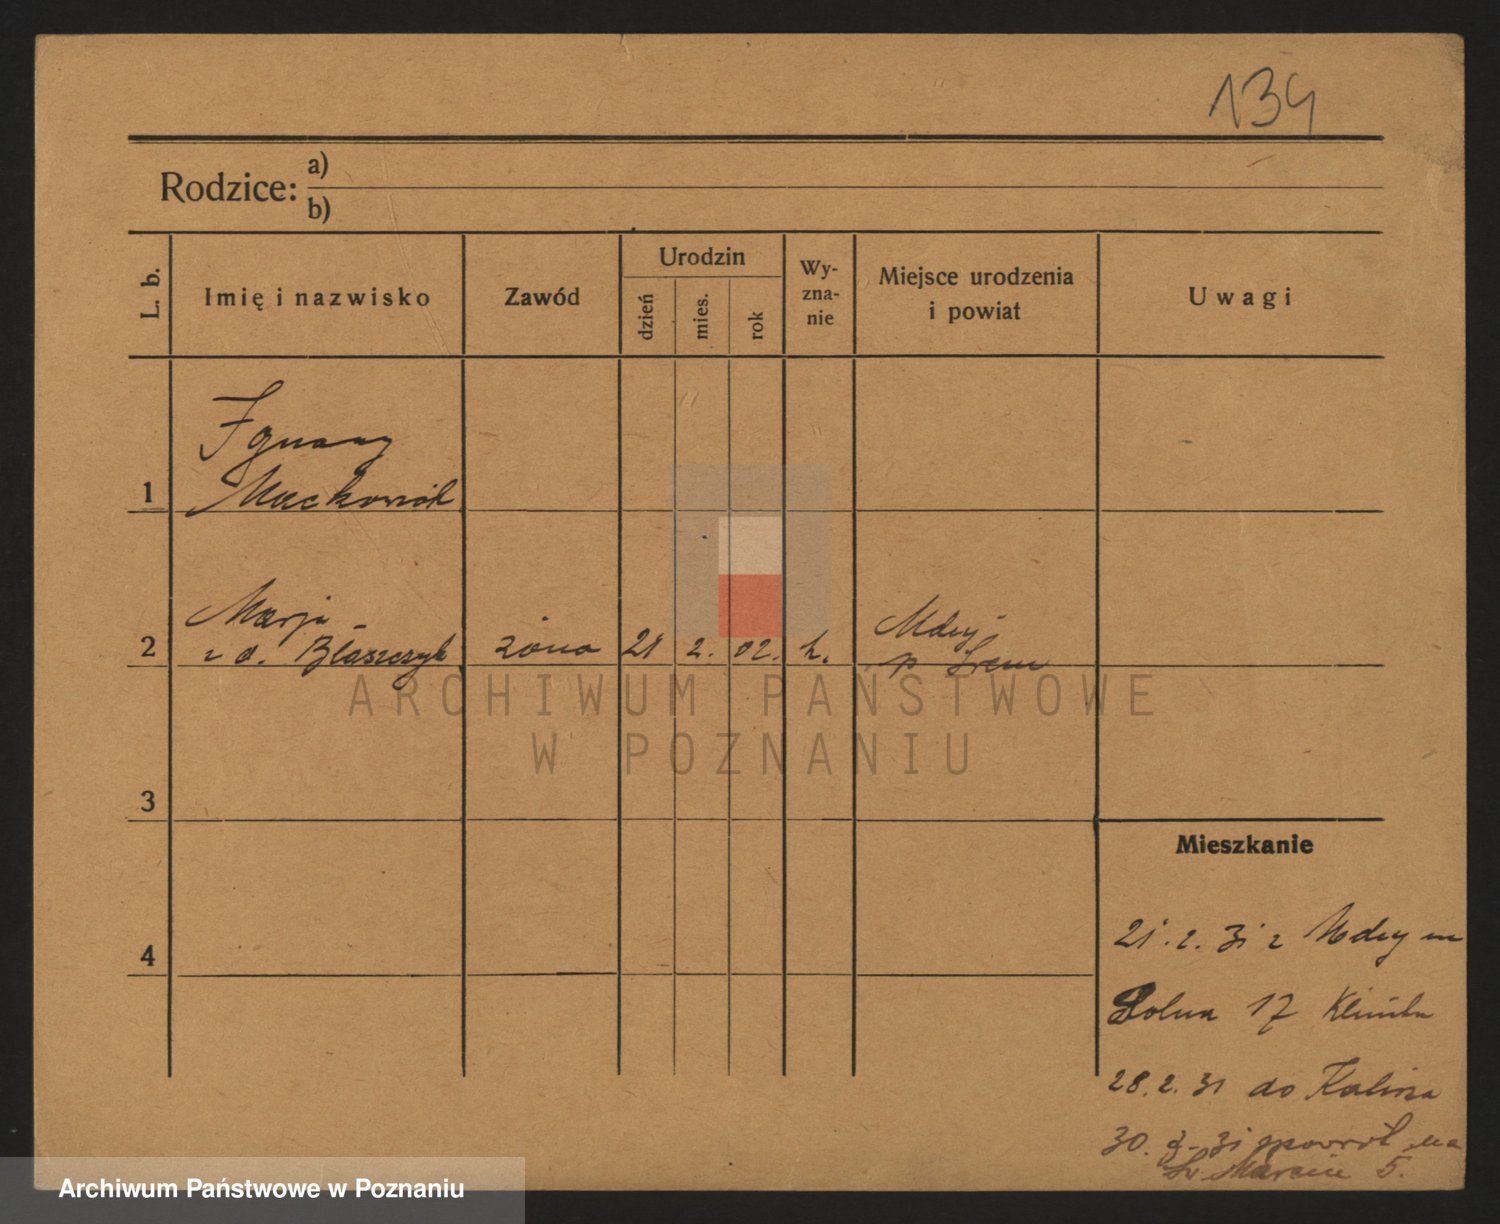 134
Rodzice: a)
b)
L. b.
Imię i nazwisko
Zawód
Urodzin
dzień
mies.
rok
Wy-
zna-
nie
Miejsce urodzenia
i powiat
Uwagi
1
Ignacy
Maćkowiak
2
Marja
z d. Błaszczyk
żona
21
2.
02.
k.
Mchy
p Śrem
3
4
Mieszkanie
21.2.31 z Mchy na
Polna 17 Klinika
28.2.31 do Kalisza
30. 31 powrót na
Św Marcin 5.
ARCHIWUM PAŃSTWOWE
W POZNANIU
Archiwum Państwowe w Poznaniu